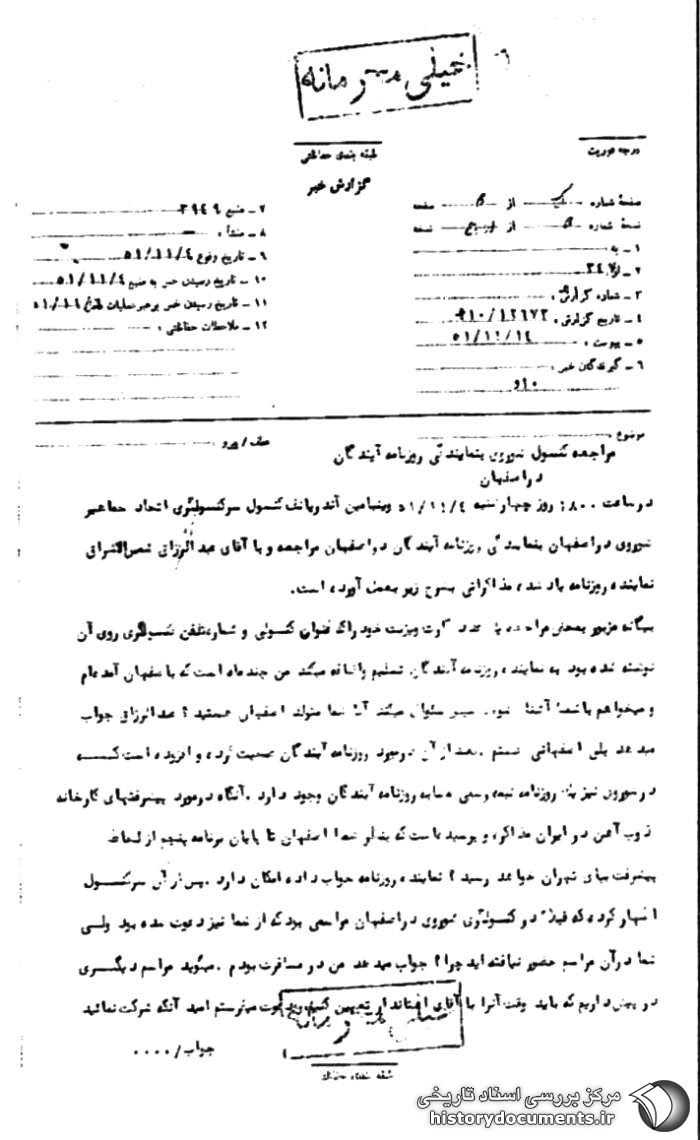 خیلی محرمانه
درجه فوریت
طبقه بندی حفاظتی
گزارش خبر
صفحهٔ شماره یک از ۵ صفحه
نسخهٔ شماره ۵ از پنج نسخه
۱ - به
۲ - از
۳ - شماره گزارش
۴ - تاریخ گزارش
۵ - پیوست
۵۱/۱۱/۱۴
۶ - گیرندگان خبر
۷ - منبع ۳۹۴۹
۸ - منشأ
۹ - تاریخ وقوع ۵۱/۱۱/۴
۱۰ - تاریخ رسیدن خبر به منبع ۵۱/۱۱/۴
۱۱ - تاریخ رسیدن خبر برهبر عملیات
۱۲ - ملاحظات حفاظتی
موضوع
عطف / پیرو
مراجعه کنسول شوروی بنمایندگی روزنامه آیندگان
در اصفهان
در ساعت ۱۸۰۰ روز چهارشنبه ۵۱/۱۱/۴ وینیامین آندریانف کنسول سرکنسولگری اتحاد جماهیر
شوروی در اصفهان بنمایندگی روزنامه آیندگان در اصفهان مراجعه و با آقای عبدالرزاق
نماینده روزنامه یاد شده مذاکراتی بشرح زیر بعمل آورده است.
بیگانه مزبور بمحض مراجعه یک عدد کارت ویزیت خود را که عنوان کنسولی و شماره تلفن کنسولگری روی آن
نوشته شده بود به نماینده روزنامه آیندگان تسلیم و اضافه میکند من چند ماه است که باصفهان آمده‌ام
و میخواهم با شما آشنا شوم. سپس سئوال میکند آیا شما متولد اصفهان هستید؟ عبدالرزاق جواب
میدهد بلی اصفهانی هستم. بعد از آن در مورد روزنامه آیندگان صحبت کرده و افزوده است که
در شوروی نیز یک روزنامه نیمه رسمی مشابه روزنامه آیندگان وجود دارد. آنگاه در مورد پیشرفتهای کارخانه
ذوب آهن در ایران مذاکره و پرسیده است که بنظر شما اصفهان تا پایان برنامه پنجم از لحاظ
پیشرفت بپای تهران خواهد رسید؟ نماینده روزنامه جواب داده امکان دارد. پس از آن سرکنسول
اظهار کرده که قبلاً در کنسولگری شوروی در اصفهان مراسمی بود که از شما نیز دعوت شده بود ولی
شما در آن مراسم حضور نیافته اید چرا؟ جواب میدهد من در مسافرت بودم. میگوید مراسم دیگری
در پیش داریم که باید وقت آنرا با آقای استاندار تعیین کنیم و دعوت میفرستم امید آنکه شرکت نمائید
جواب/۰۰۰۰
خیلی محرمانه
طبقه بندی حفاظتی
مرکز بررسی اسناد تاریخی
historydocuments.ir